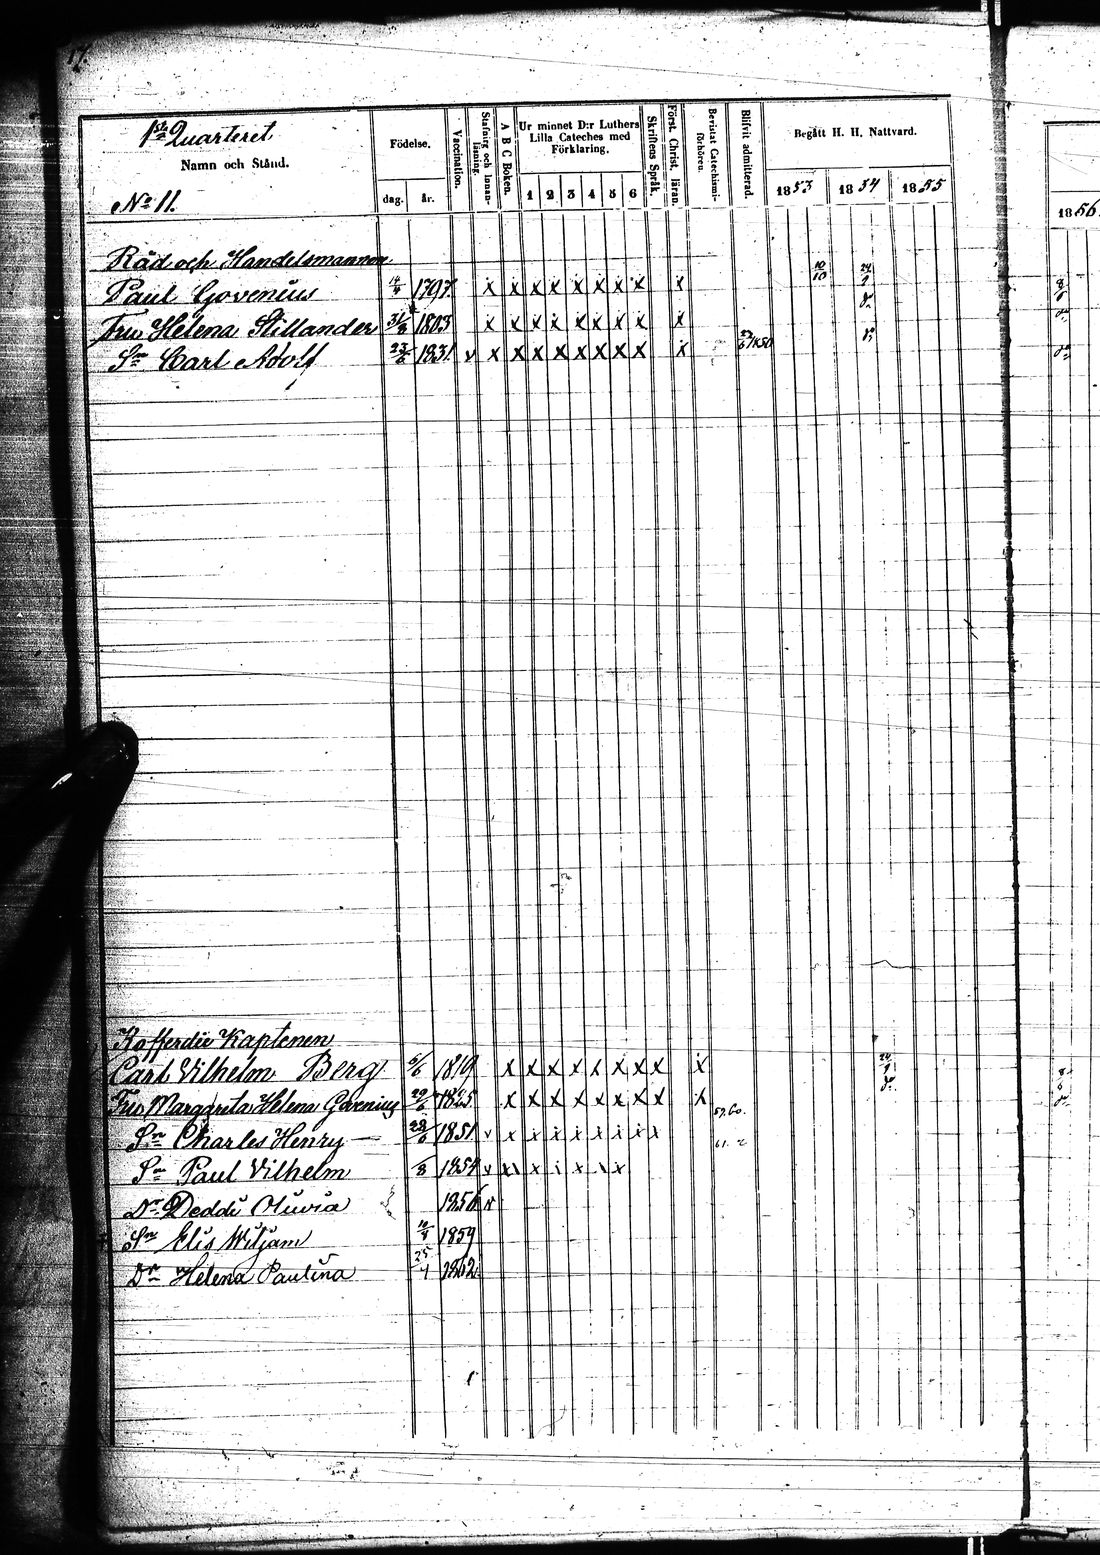 17.
1sta Quarteret
Namn och Stånd.
No 11.
Födelse.
dag. år.
Vaccination.
Stafning och Innanläsning.
A B C Boken.
Ur minnet D:r Luthers Lilla Cateches med Förklaring.
1 2 3 4 5 6
Skriftens Språk.
Först. Christ. läran.
Bevistat Catechismiförhören.
Blifvit admitterad.
Begått H. H. Nattvard.
1853 1854 1855
1856
Råd och Handelsmannen
Paul Govenius 1797. x x x x x x x x x 10/10
Fru Helena Stillander 31/8 1803 x x x x x x x x x do
Sn Carl Adolf 23/6 1831. v x x x x x x x x x
Kofferdie Kaptenen
Carl Vilhelm Berg 5/6 1819 x x x x x x x x x
Fru Margareta Helena Govenius 1825 x x x x x x x x x do
59. 60.
Sn Charles Henry 28/6 1851 v x x x x x x x x
Sn Paul Vilhelm 1854 v x x x x
Dr Deddi Olivia 1856
Sn Elis Wiljam 1859
Dr Helena Paulina 1862.